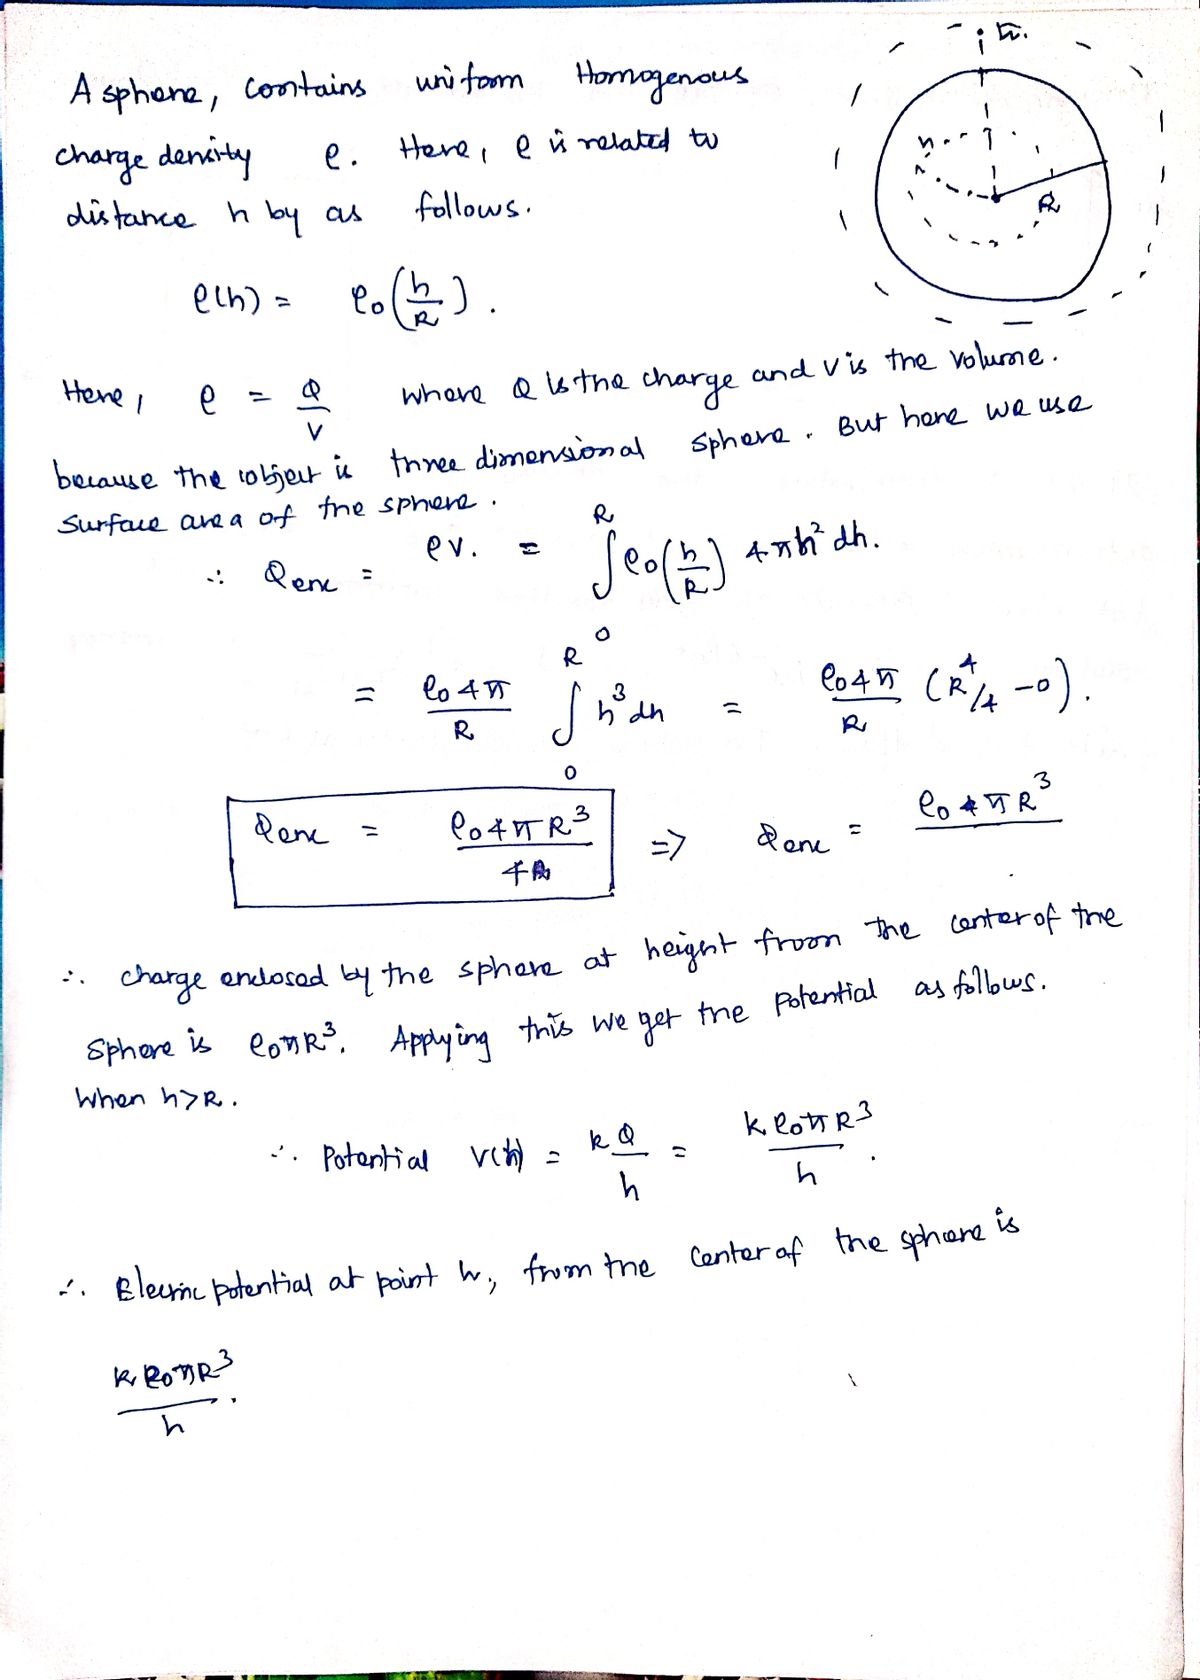 h.
A sphere, contains uniform Homogenous
charge density ρ. Here, ρ is related to
distance h by as follows.
h
R
ρ(h) = ρ₀(h/R).
Here, ρ = Q/V where Q is the charge and V is the volume.
because the object is three dimensional sphere. But here we use
Surface area of the sphere.
∴ Qenc = ρV. = ∫₀ᴿ ρ₀(h/R) 4πh² dh.
= ρ₀4π/R ∫₀ᴿ h³dh = ρ₀4π/R (R⁴/4 - 0).
Qenc = ρ₀4πR³/4 => Qenc = ρ₀πR³
∴ charge enclosed by the sphere at height from the center of the
Sphere is ρ₀πR³. Applying this we get the potential as follows.
When h>R.
∴ Potential V(h) = kQ/h = kρ₀πR³/h.
∴ Electric potential at point h, from the Center of the sphere is
kρ₀πR³/h.